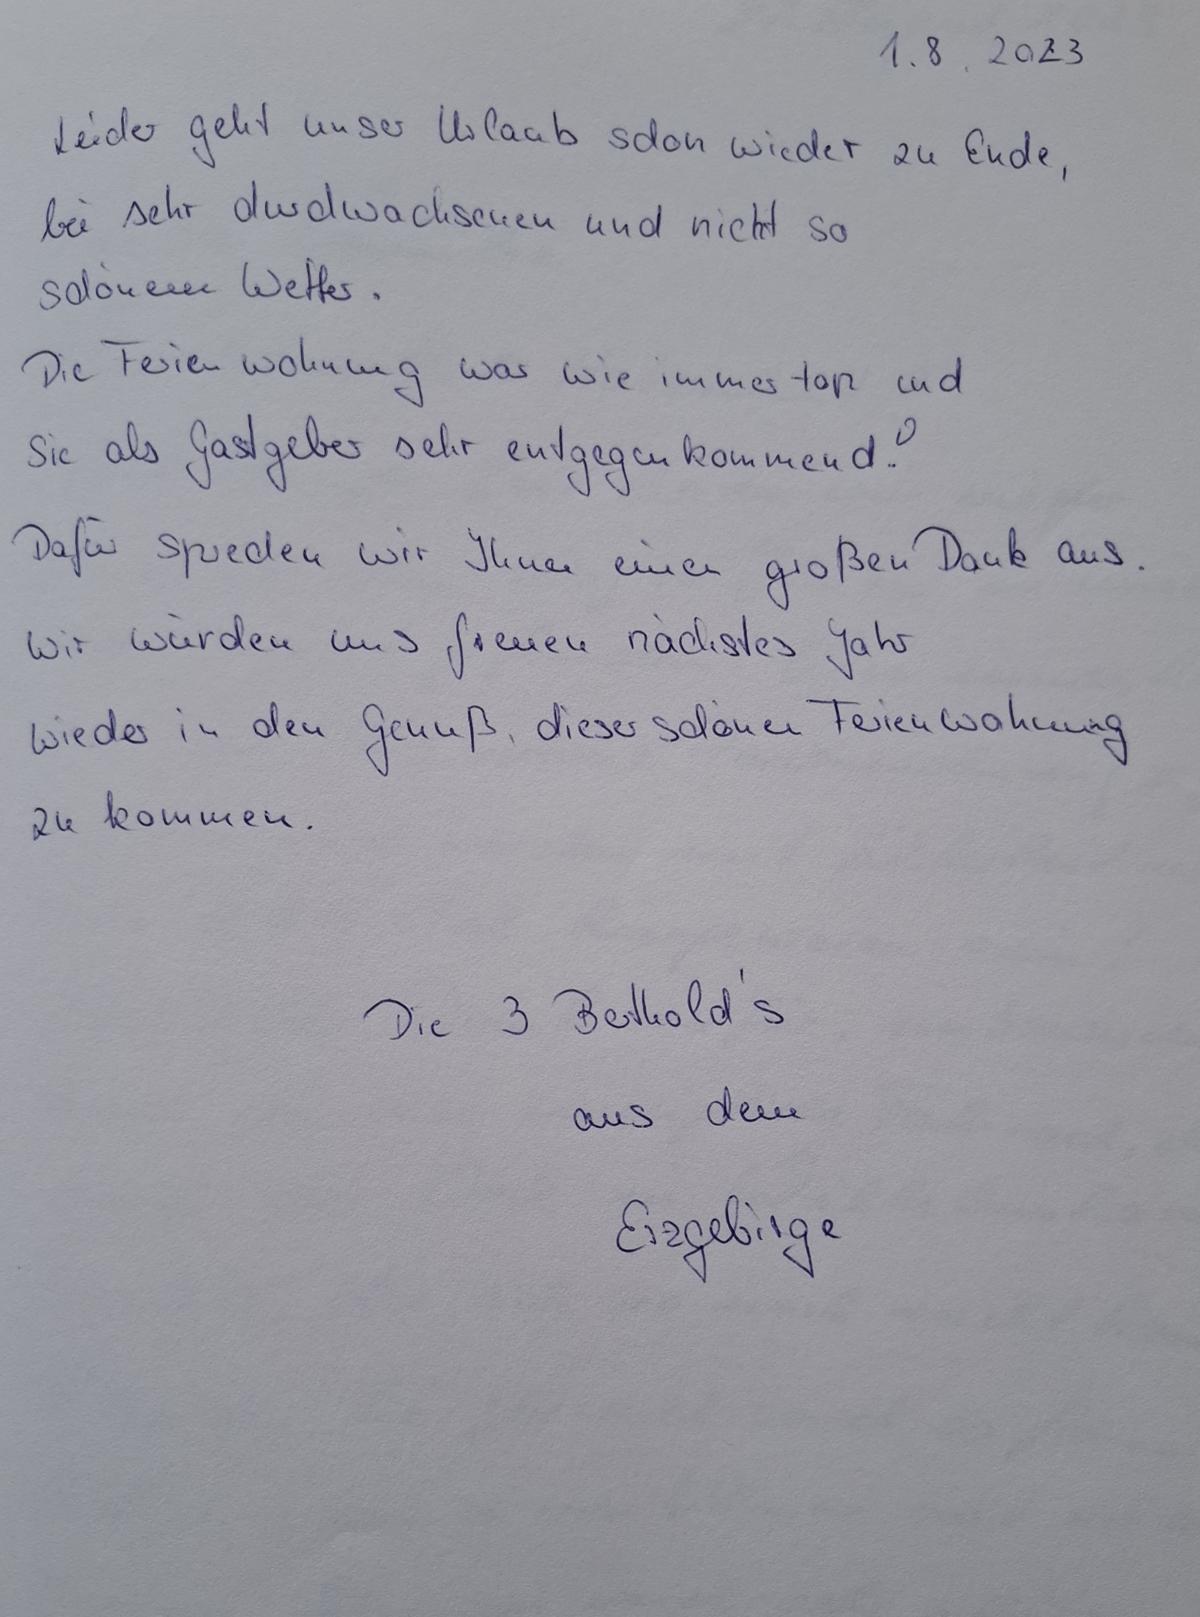 1.8.2023
Leider geht unser Urlaub schon wieder zu Ende,
bei sehr durchwachsenen und nicht so
schönem Wetter.
Die Ferienwohnung war wie immer top und
Sie als Gastgeber sehr entgegenkommend.
Dafür sprechen wir Ihnen einen großen Dank aus.
Wir würden uns freuen nächstes Jahr
wieder in den Genuß, dieser schönen Ferienwohnung
zu kommen.
Die 3 Berthold's
aus dem
Erzgebirge